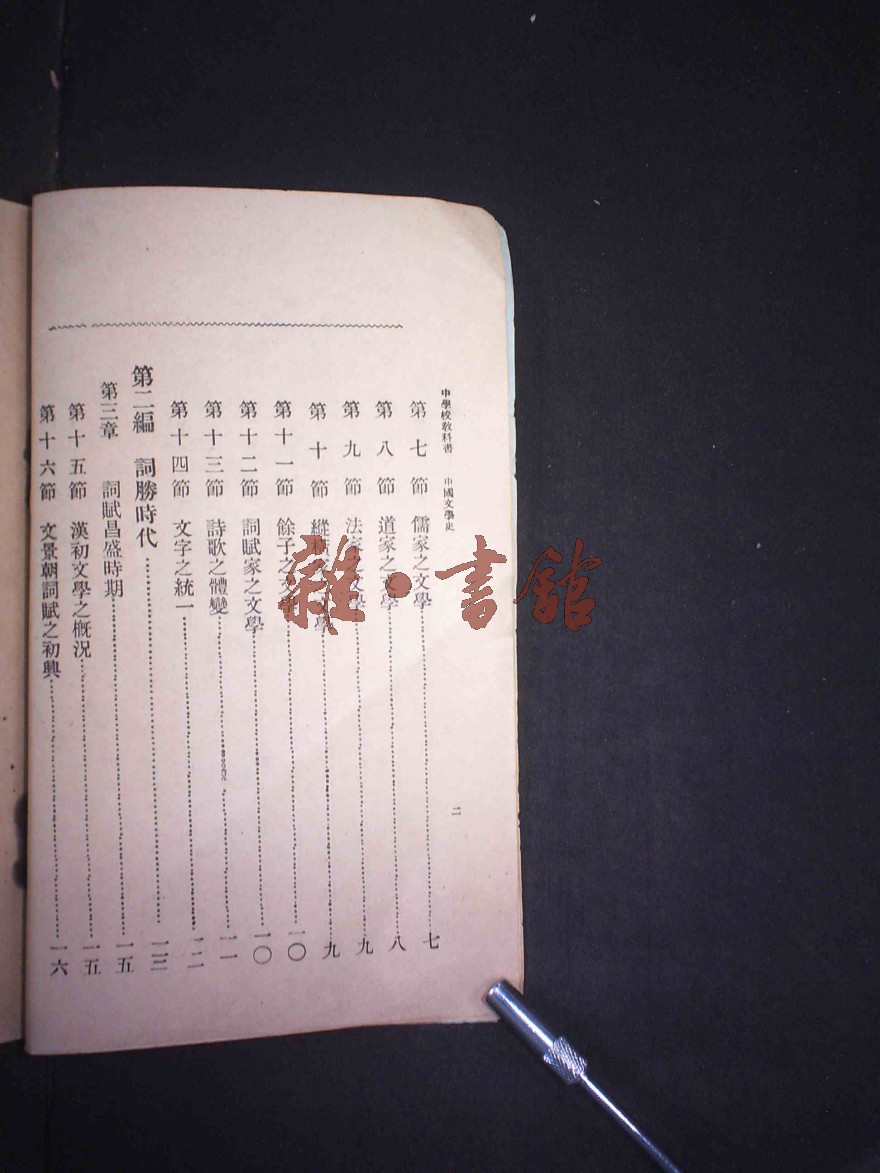 中學校教科書 中國文學史 二
第七節 儒家之文學 七
第八節 道家之文學 八
第九節 法家之文學 九
第十節 縱橫家之文學 九
第十一節 餘子之文學 一〇
第十二節 詞賦家之文學 一〇
第十三節 詩歌之體變 一一
第十四節 文字之統一 一二
第二編 詞勝時代 一三
第三章 詞賦昌盛時期 一五
第十五節 漢初文學之概況 一五
第十六節 文景朝詞賦之初興 一六
雜·書館